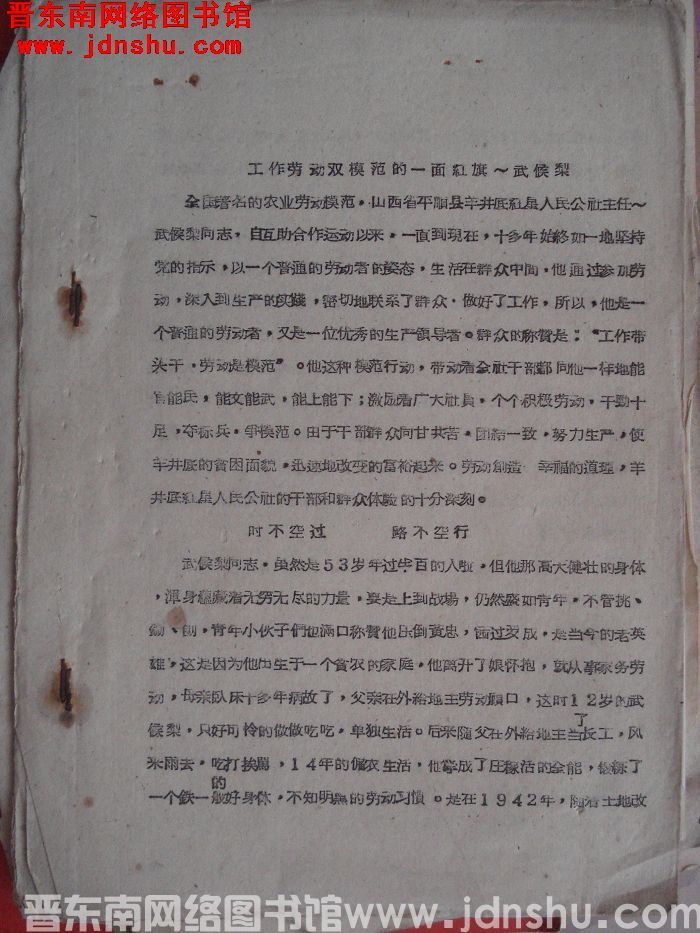 晋东南网络图书馆
www.jdnshu.com
工作劳动双模范的一面紅旗～武侯梨
全国著名的农业劳动模范，山西省平順县羊井底紅星人民公社主任～
武侯梨同志，自互助合作运动以来，一直到現在，十多年始終如一地坚持
党的指示，以一个普通的劳动者的姿态，生活在群众中間，他通过参加劳
动，深入到生产的实践，密切地联系了群众，做好了工作，所以，他是一
个普通的劳动者，又是一位优秀的生产領导者。群众的称贊是：“工作带
头干，劳动是模范”。他这种模范行动，带动着全社干部都同他一样地能
官能民，能文能武，能上能下；激励着广大社員，个个积极劳动，干勁十
足，夺标兵，争模范。由于干部群众同甘共苦，团結一致，努力生产，使
羊井底的貧困面貌，迅速地改变的富裕起来。劳动創造 幸福的道理，羊
井底紅星人民公社的干部和群众体驗的十分深刻。
时不空过 路不空行
武侯梨同志，虽然是53岁年过半百的人啦，但他那高大健壮的身体
，渾身蘊藏着无穷无尽的力量，要是上到战場，仍然賽如青年，不管挑、
、刨，青年小伙子們也滿口称贊他压倒黄忠， 是当今的老英
雄，这是因为他出生于一个貧农的家庭，他离开了娘怀抱，就从事家务劳
动，母亲臥床十多年病故了，父亲在外給地主劳动顾口，这时12岁的武
侯梨，只好可怜的做做吃吃，单独生活。后来随父在外給地主当了长工，风
来雨去，吃打挨駡，14年的雇农生活，他拿成了庄稼活的全能，鍛錬了
一个鉄一般的好身体，不知明黑的劳动习慣。是在1942年，随着土地改
晋东南网络图书馆 www.jdnshu.com